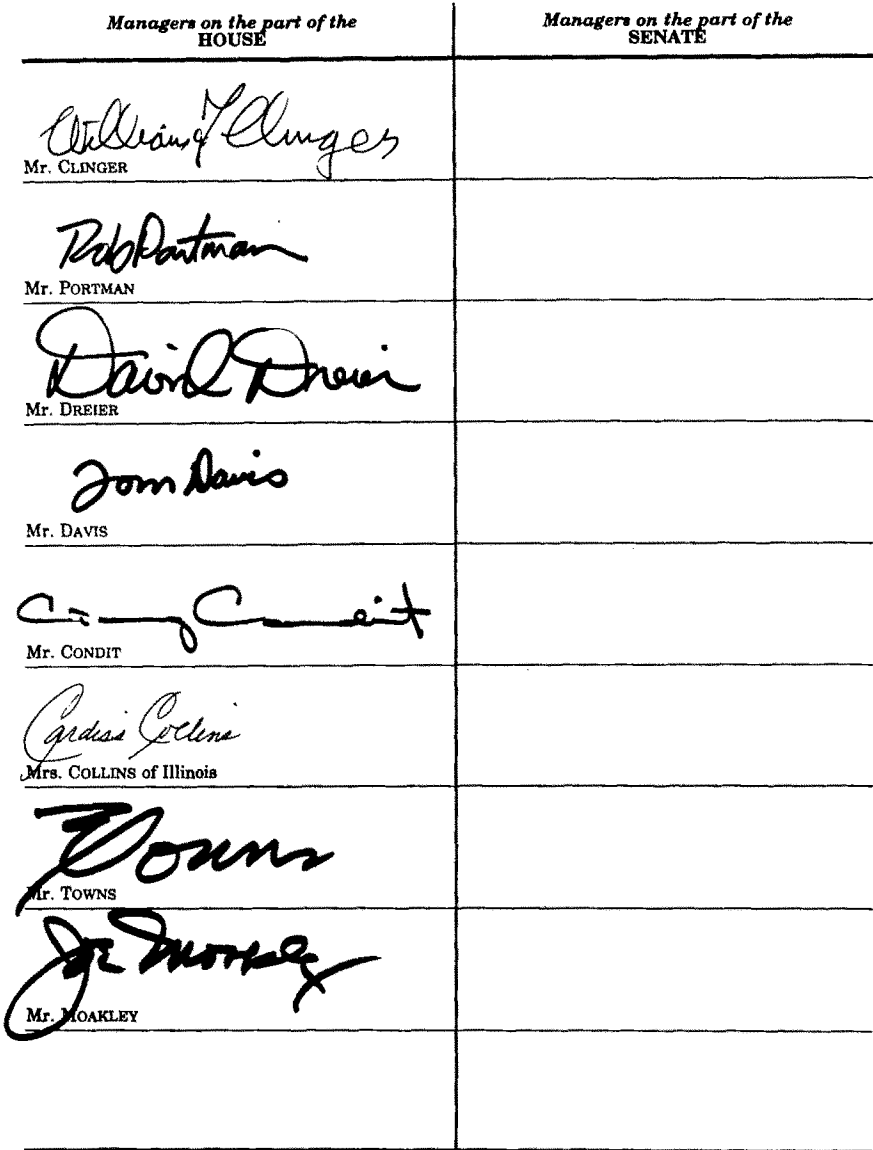 Managers on the part of the
HOUSE
Managers on the part of the
SENATE
William F Clinger
Mr. CLINGER
Rob Portman
Mr. PORTMAN
David Dreier
Mr. DREIER
Tom Davis
Mr. DAVIS
Gary Condit
Mr. CONDIT
Cardiss Collins
Mrs. COLLINS of Illinois
Towns
Mr. TOWNS
Joe Moakley
Mr. MOAKLEY